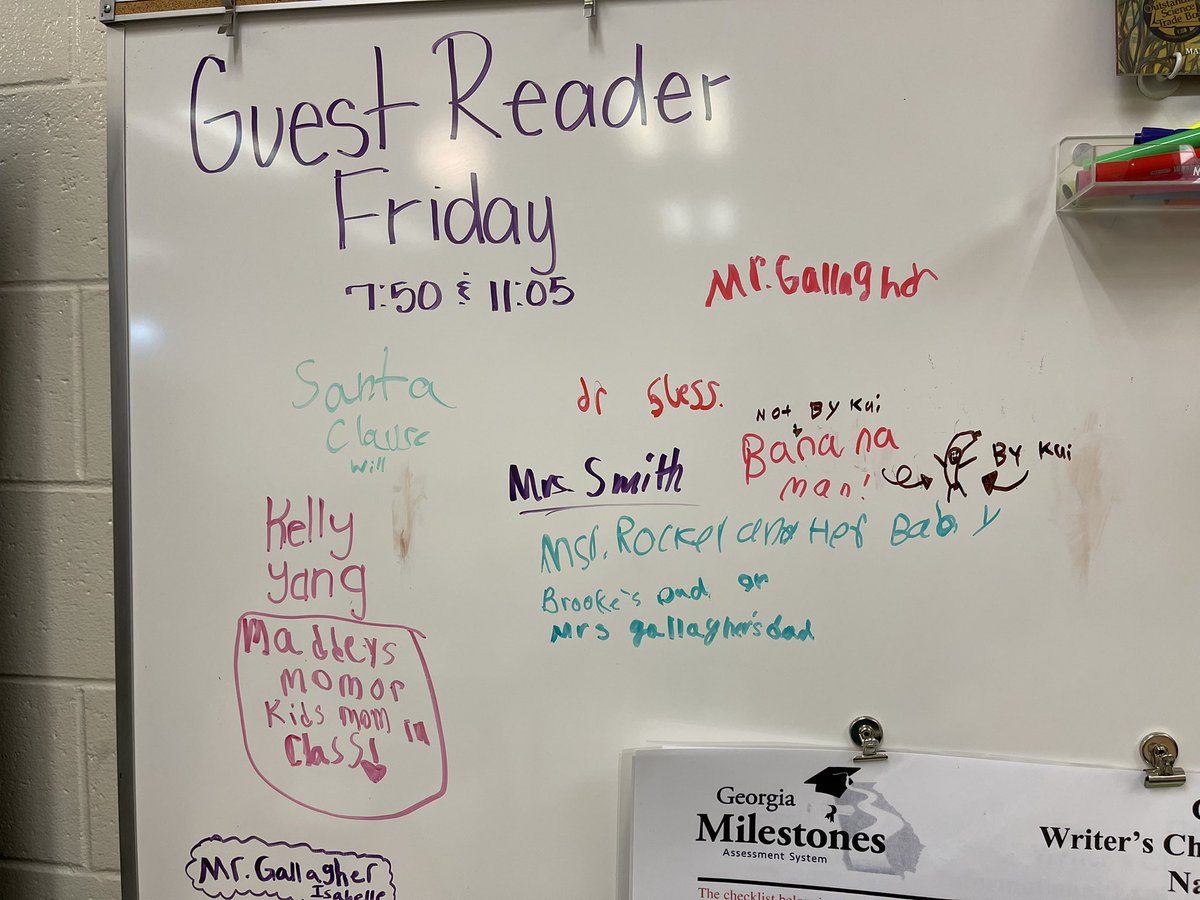 Guest Reader
Friday
7:50 & 11:05
Mr. Gallaghr
Santa
Clause
Will
dr
Not By Kai
Banana
man!
By Kai
Mrs. Smith
Msr. Rocker and Her Baby
Brooke's Dad or
Mrs gallagher's dad
Kelly
yang
Maddeys
mom or
Kids mom in
Class!
Mr. Gallagher
Isabelle
Outstanding
Science
Trade B
Georgia
Milestones
Assessment System
Writer's Ch
Na
The checklist below i